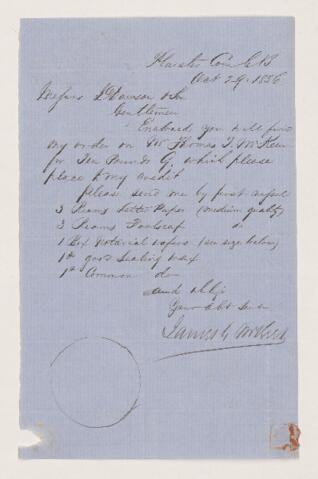 Oct 29. 1856
Messrs Dawson & Son
Gentlemen
Enclosed you will find
my order on Mr Thomas
for Ten Pounds which please
place to my credit
please send me by first
3 Reams Letter Paper (medium quality)
3 Reams Foolscap do
1 Box Notarial wafers (see size below)
1 good Sealing wax
1 Common do
and oblige
Your Obt Servt
James G